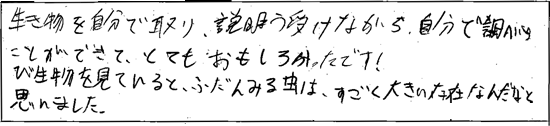 生き物を自分で取り、説明う受けながら、自分で調
ことができて、とてもおもしろかったです!
び生物を見ていると、ふだんみる虫は、すごく大きい存在なんだなと
思いました。